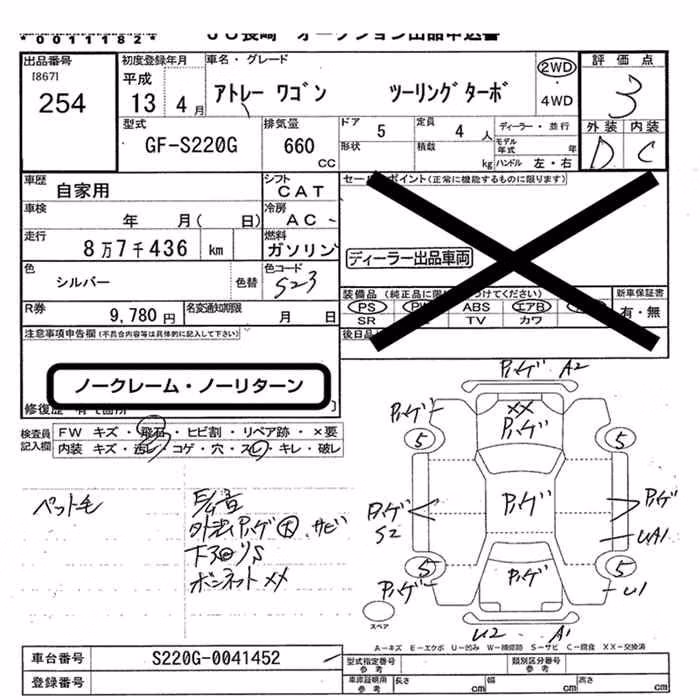 *0011182* JU長崎 オークション出品申込書
出品番号
[867]
254
初度登録年月
平成
13 4 月
車名・グレード
アトレー ワゴン ツーリングターボ
2WD
・
4WD
評価点
3
外装 内装
D C
型式
GF-S220G
排気量
660
CC
ドア
5
定員
4 人
ディーラー・並行
形状
積載
kg
モデル年式 年
ハンドル 左・右
車歴
自家用
シフト
CAT
車検
年 月( 日)
冷房
AC
走行
8万7千436 km
燃料
ガソリン
色
シルバー
色替
色コード
S23
R券
9,780 円
名変通知期限
月 日
セールスポイント(正常に機能するものに限ります)
ディーラー出品車両
装備品
PS ABS エアB
SR TV カワ
新車保証書
有・無
後日品
注意事項申告欄(不具合内容等は具体的に記入して下さい)
ノークレーム・ノーリターン
修復歴
検査員
記入欄
FW キズ・飛石・ヒビ割・リペア跡・×要
内装 キズ・汚レ・コゲ・穴・スレ・キレ・破レ
ペット毛
外装ハゲ大、サビ
下回りS
ボンネットXX
ハゲ A2
ハゲ
XX
ハゲ
5
5
ハゲ
S2
ハゲ
ハゲ
UA1
5
ハゲ
5
ハゲ
U1
U2 A1
スペア
A-キズ E-エクボ U-凹み W-補修跡 S-サビ C-腐食 XX-交換済
車台番号
S220G-0041452
登録番号
型式指定番号
参考
類別区分番号
参考
車庫証明用
参考
長さ cm
幅 cm
高さ cm